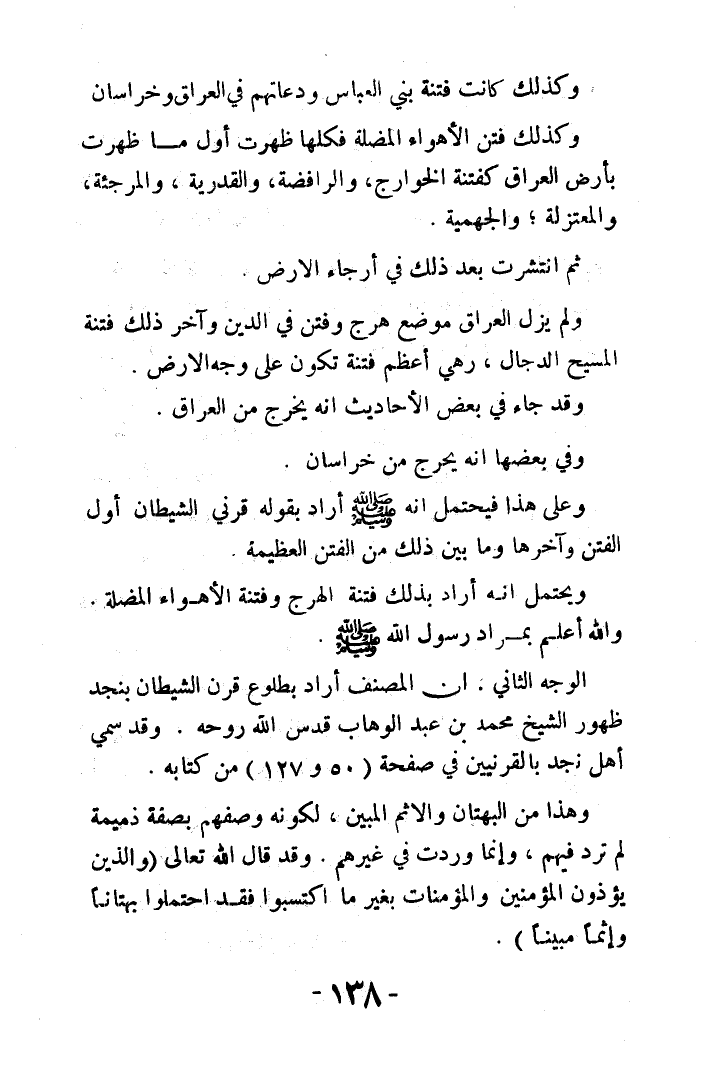 وكذلك كانت فتنة بني العباس ودعاتهم في العراق وخراسان
وكذلك فتن الأهواء المضلة فكلها ظهرت أول مـــا ظهرت
بأرض العراق كفتنة الخوارج، والرافضة، والقدرية ، والمرجئة،
والمعتزلة ؛ والجهمية .
ثم انتشرت بعد ذلك في أرجاء الارض .
ولم يزل العراق موضع هرج وفتن في الدين وآخر ذلك فتنة
المسيح الدجال ، رهي أعظم فتنة تكون على وجه الارض .
وقد جاء في بعض الأحاديث انه يخرج من العراق .
وفي بعضها انه يحرج من خراسان .
وعلى هذا فيحتمل انه ﷺ أراد بقوله قرني الشيطان أول
الفتن وآخرها وما بين ذلك من الفتن العظيمة .
ويحتمل انـه أراد بذلك فتنة الهرج وفتنة الأهـواء المضلة .
والله أعلـم بمـراد رسول الله ﷺ .
الوجه الثاني . ان المصنف أراد بطلوع قرن الشيطان بنجد
ظهور الشيخ محمد بن عبد الوهاب قدس الله روحه . وقد سمي
أهل نجد بالقرنيين في صفحة ( ٥٠ و ١٢٧ ) من كتابه .
وهذا من البهتان والاثم المبين ، لكونه وصفهم بصفة ذميمة
لم ترد فيهم ، وإنما وردت في غيرهم . وقد قال الله تعالى (والذين
يؤذون المؤمنين والمؤمنات بغير ما اكتسبوا فقـد احتملوا بهتانـاً
وإثمـاً مبينـاً ) .
- ١٣٨ -